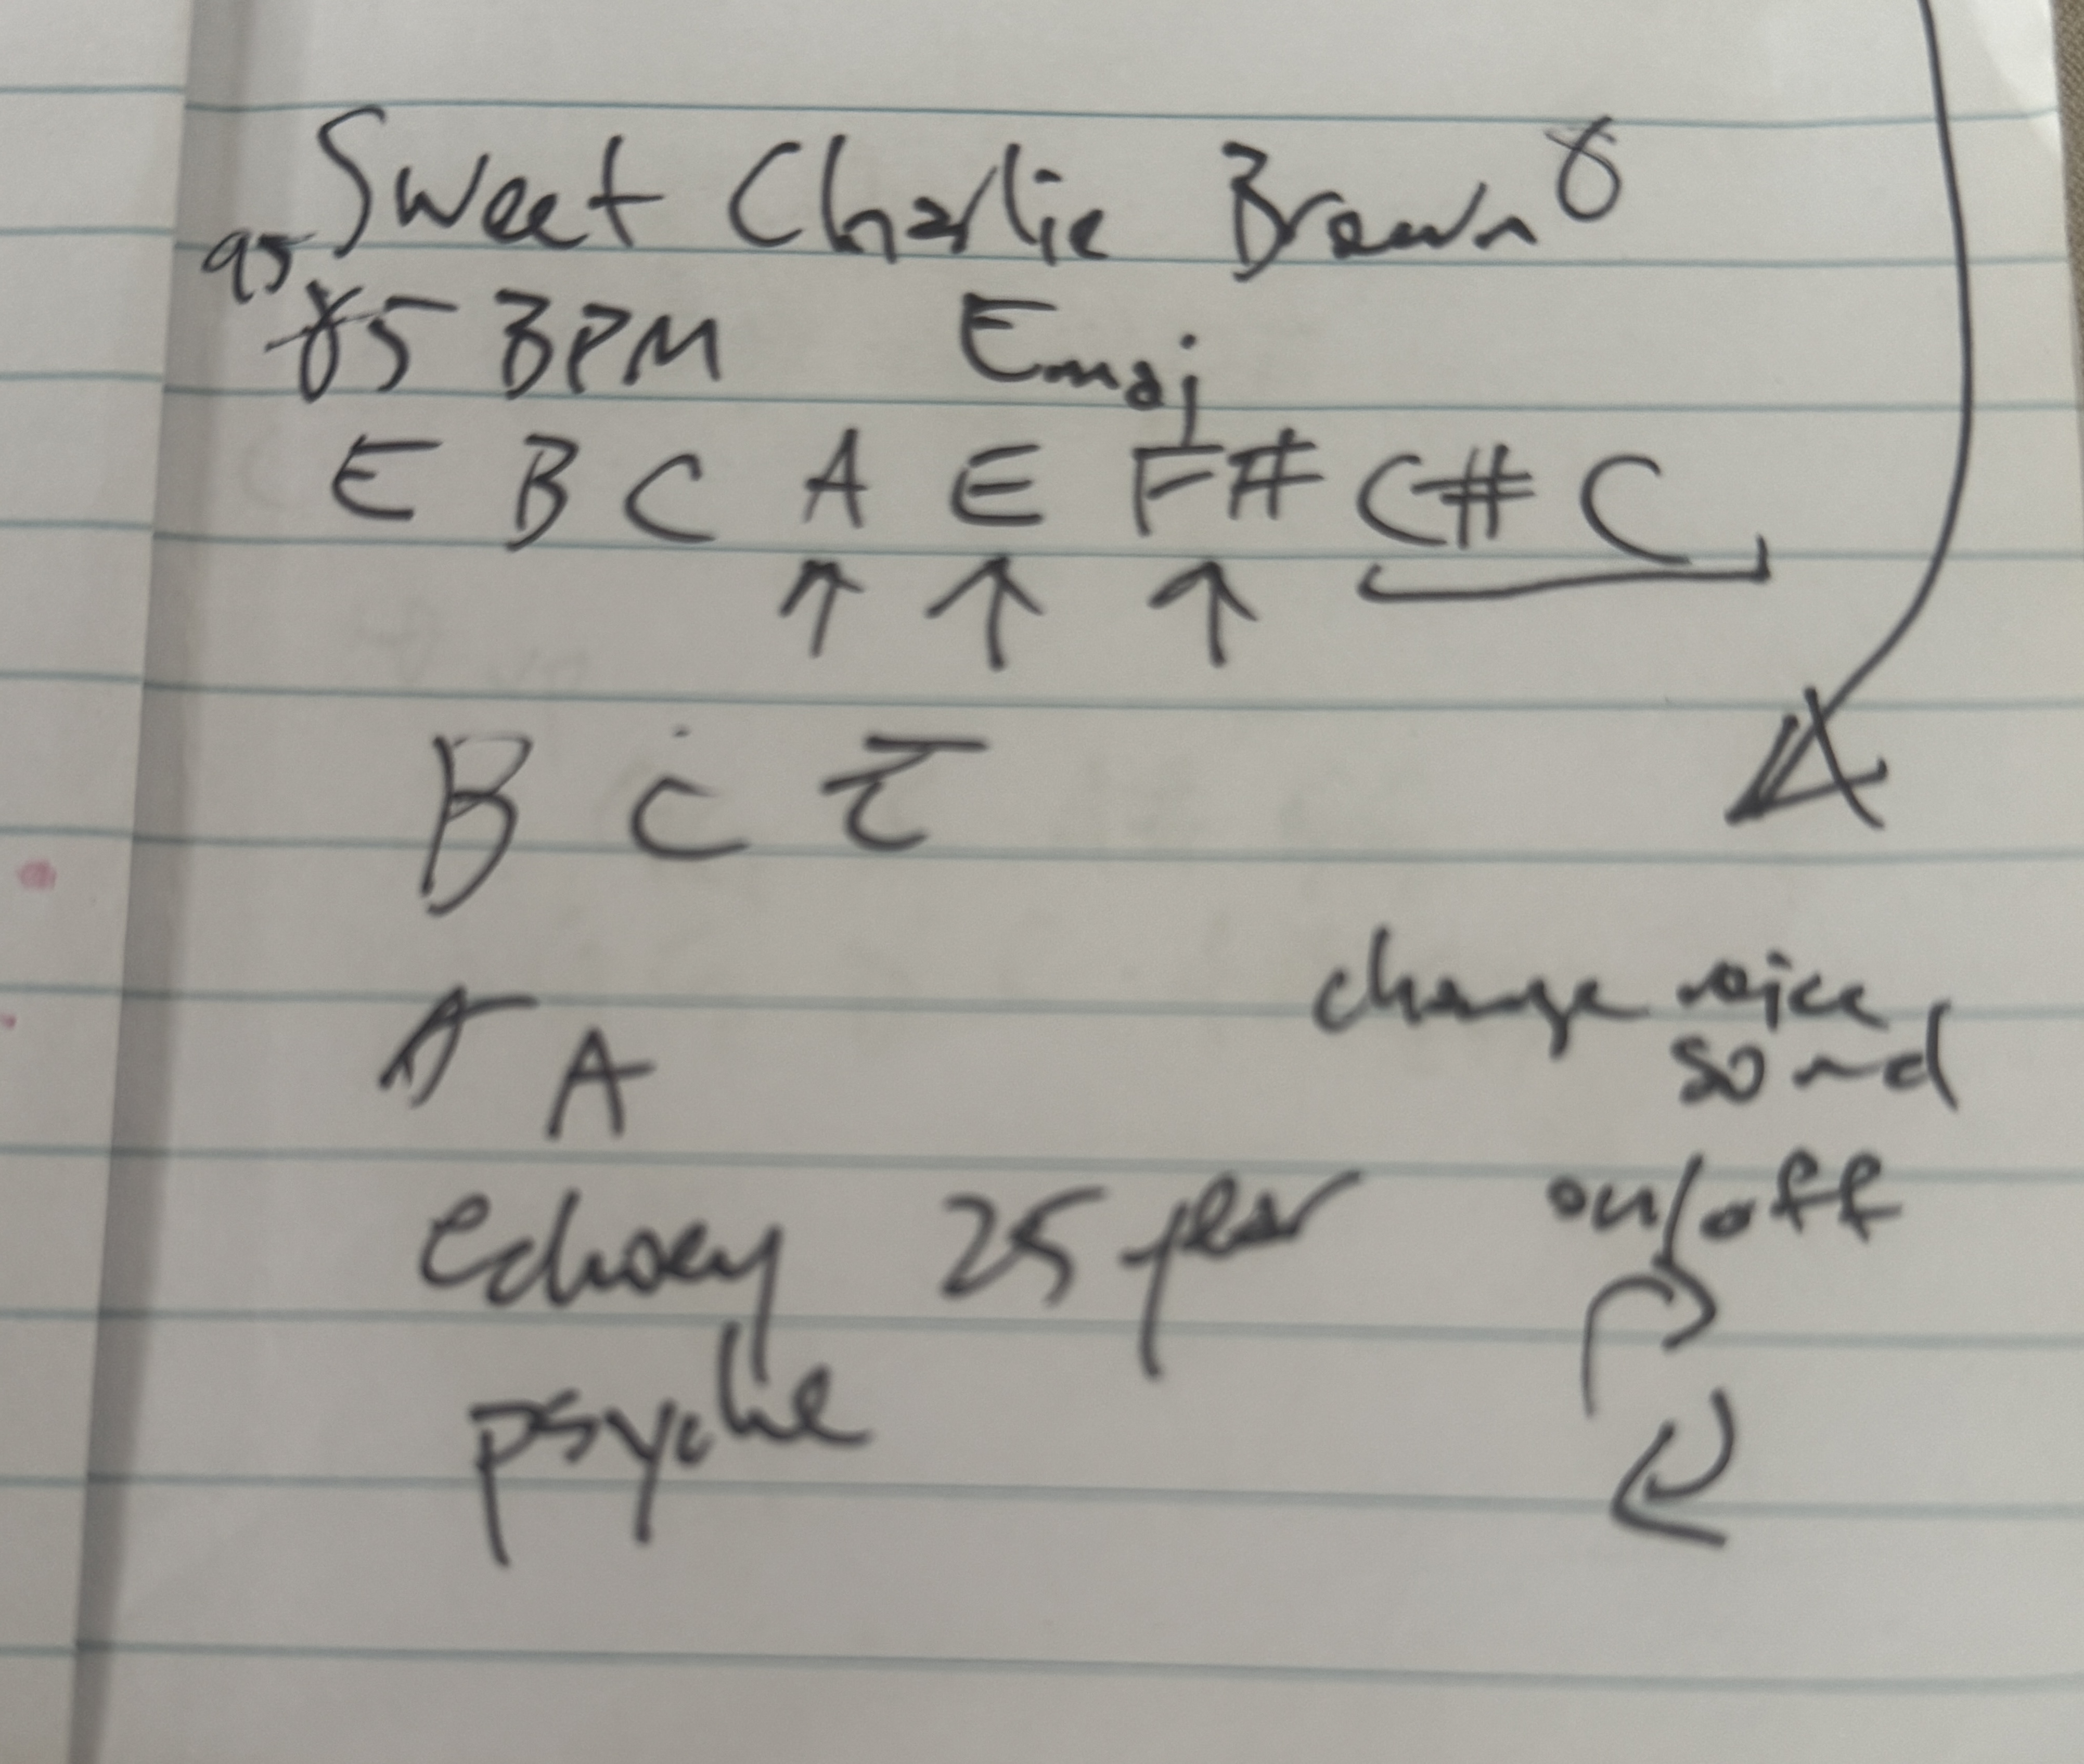 Sweet Charlie Brown 8
95
85 BPM Emaj
E B C A E F# C# C
↑ ↑ ↑
B C E
A
change voice
sound
echoey 25 year on/off
psyche